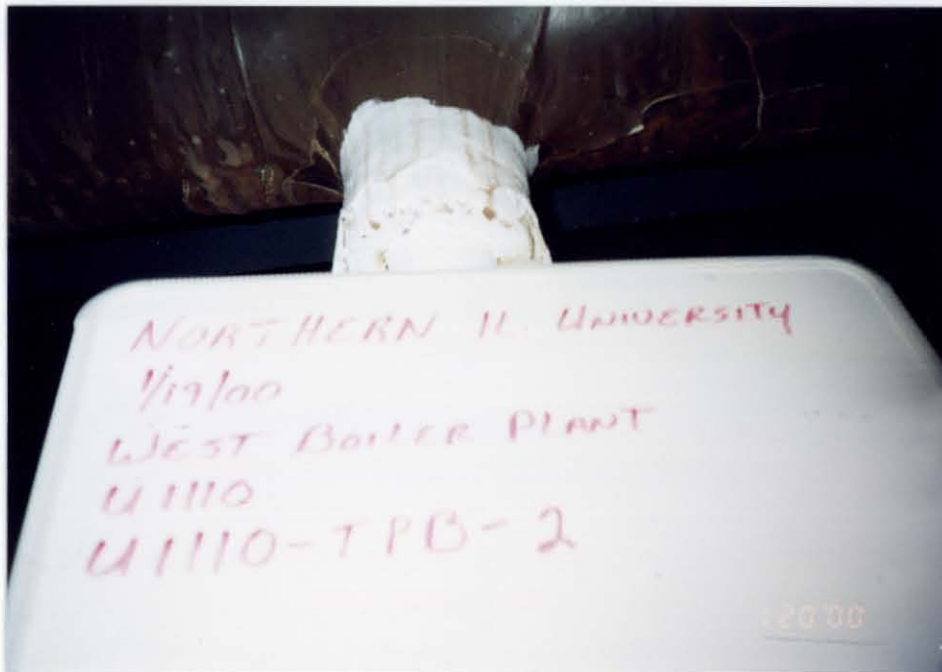 NORTHERN IL UNIVERSITY
1/19/00
WEST BOILER PLANT
U1110
U1110-TPB-2
1 20 '00